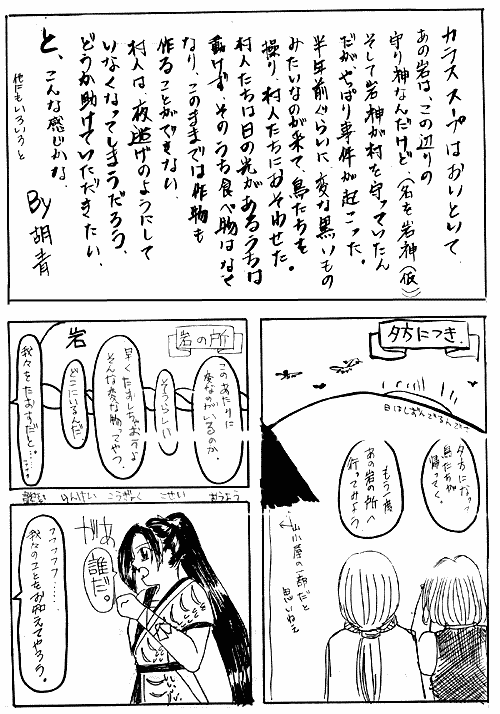 カラススープはおいといて
あの岩は、この辺りの
守り神なんだけど、(名を岩神(仮))
そして岩神が村を守っていたん
だがやっぱり事件が起こった。
半年前ぐらいに、変な黒いもの
みたいなのが来て、鳥たちを
操り、村人たちにおそわせた。
村人たちは日の光があるうちは
動けず、そのうち食べ物はなく
なり、このままでは作物も
作ることができない。
村人は、夜逃げのようにして
いなくなってしまうだろう、
どうか助けていただきたい、
と、こんな感じかな、
他にもいろいろと
By 胡青
夕方につき、
日はしずんでるんです
夕方になって
鳥たちが
帰ってく。
もう一度
あの岩の所へ
行ってみよう
山小屋の一部だと
思いねぇ
岩の所
岩
このあたりに
変なのがいるのか、
そうらしい
早くたおしちゃおうよ
そんな変な物ってやつ、
どこにいるんだ
我々をたおすだと……
こうぎょく
こせい
おうよう
がぁ
誰だ。
フフフフフ……
我々のこともおしえてやろう。